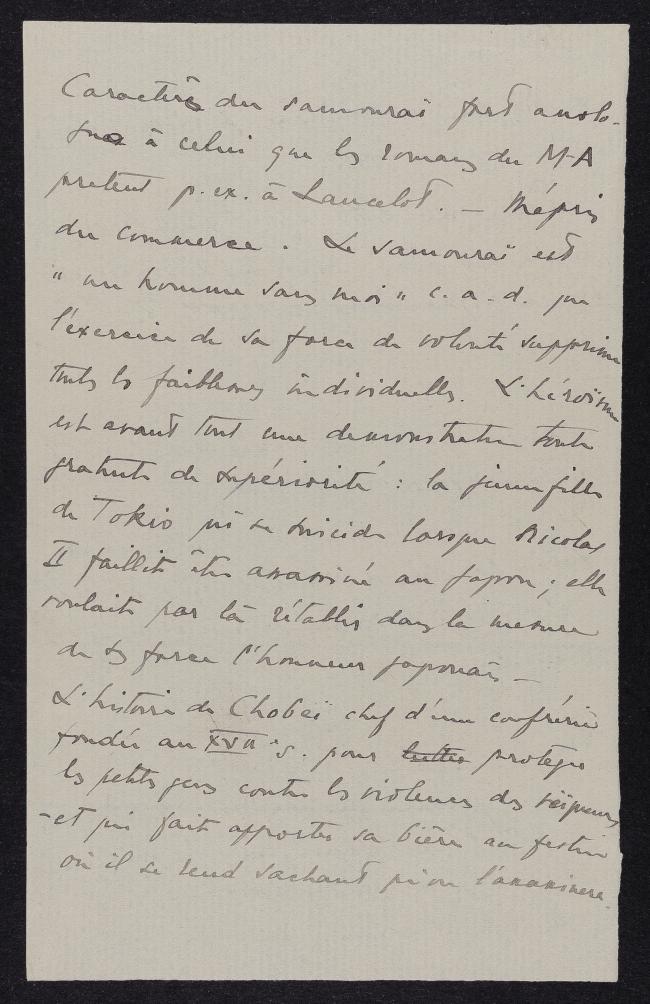 Caractère du samouraï fort analo-
gue à celui que les romans du M-A
prêtent p. ex. à Lancelot. — Mépris
du commerce. Le samouraï est
" un homme sans moi " c. a. d. que
l'exercice de sa force de volonté supprime
toutes les faiblesses individuelles. L'héroïsme
est avant tout une démonstration toute
gratuite de supériorité : la jeune fille
de Tokio qui se suicide lorsque Nicolas
II faillit être assassiné au Japon ; elle
voulait par là rétablir dans la mesure
de ses forces l'honneur japonais —
L'histoire de Chobeï chef d'une confrérie
fondée au XVIIe s. pour lutter protéger
les petites gens contre les violences des seigneurs
- et qui fait apporter sa bière au festin
où il se rend sachant qu'on l'assassinera.